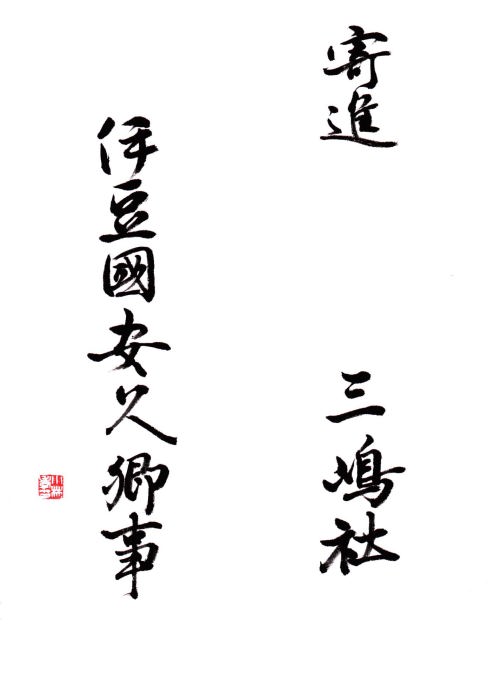 寄進 三嶋社
伊豆國安久郷事